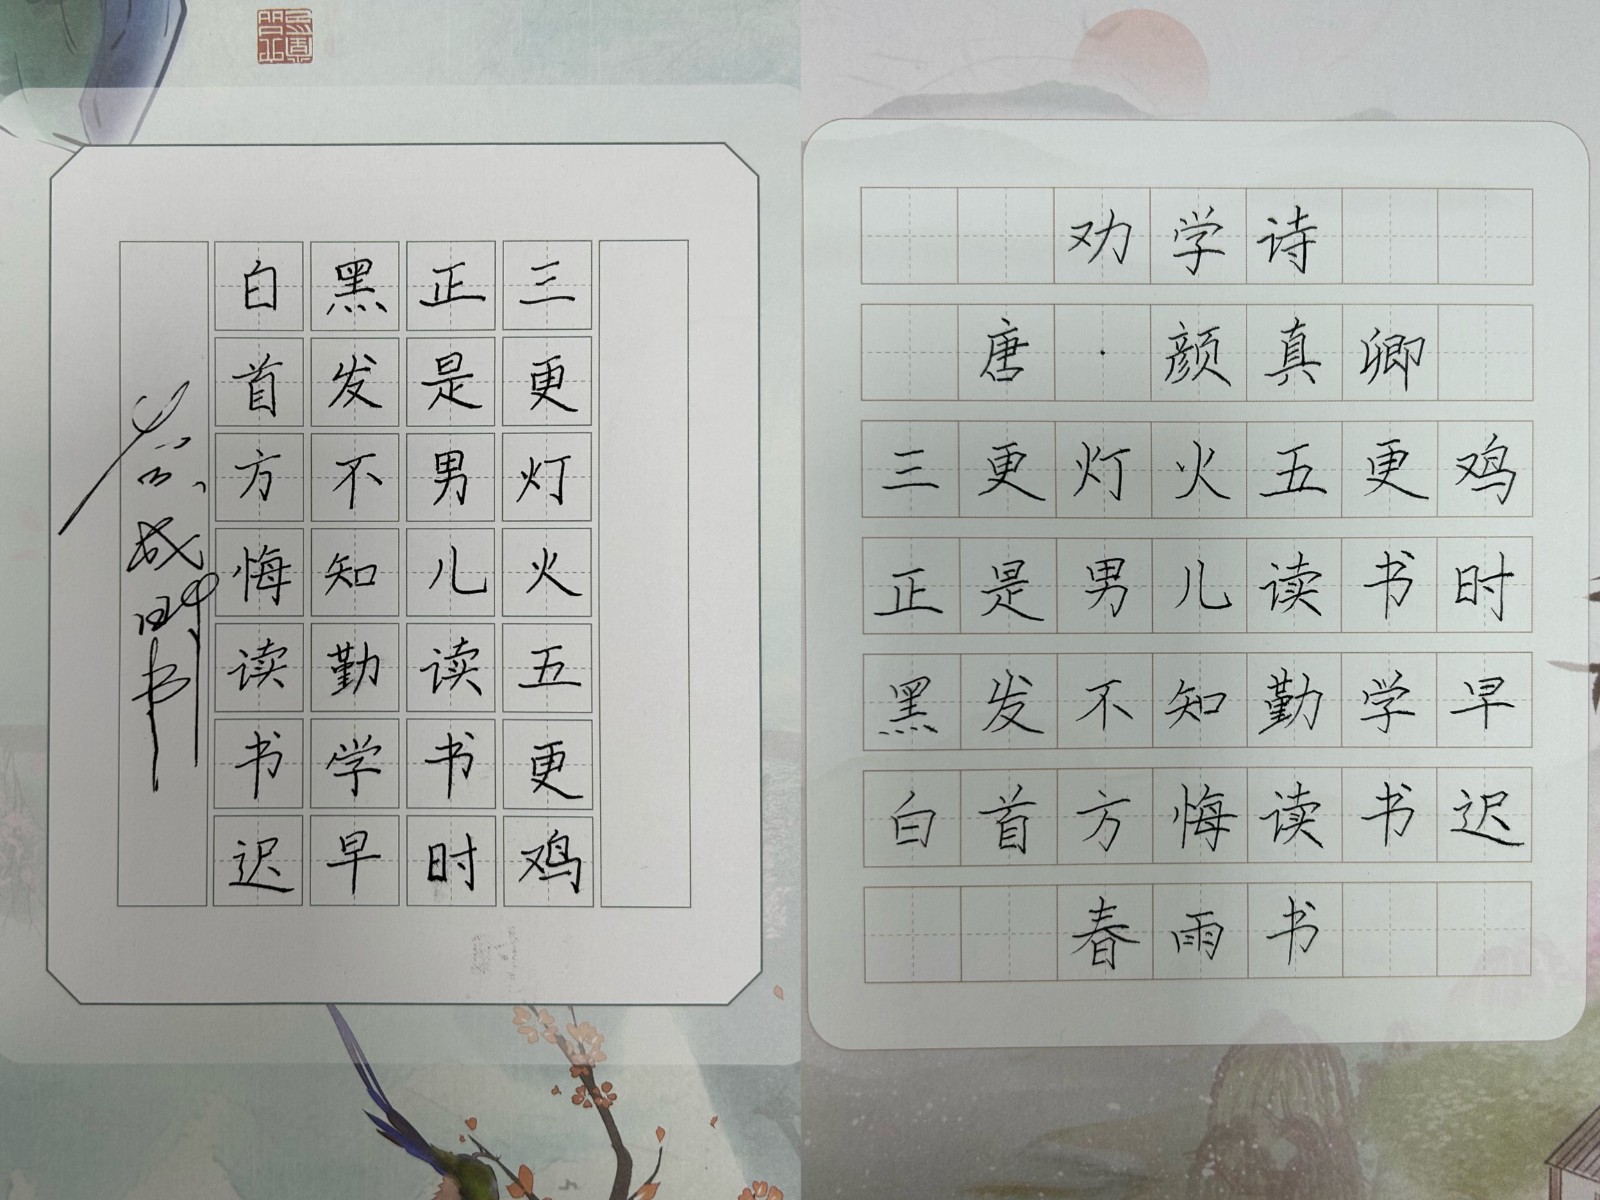 三更灯火五更鸡
正是男儿读书时
黑发不知勤学早
白首方悔读书迟
书
劝学诗
唐·颜真卿
三更灯火五更鸡
正是男儿读书时
黑发不知勤学早
白首方悔读书迟
春雨书